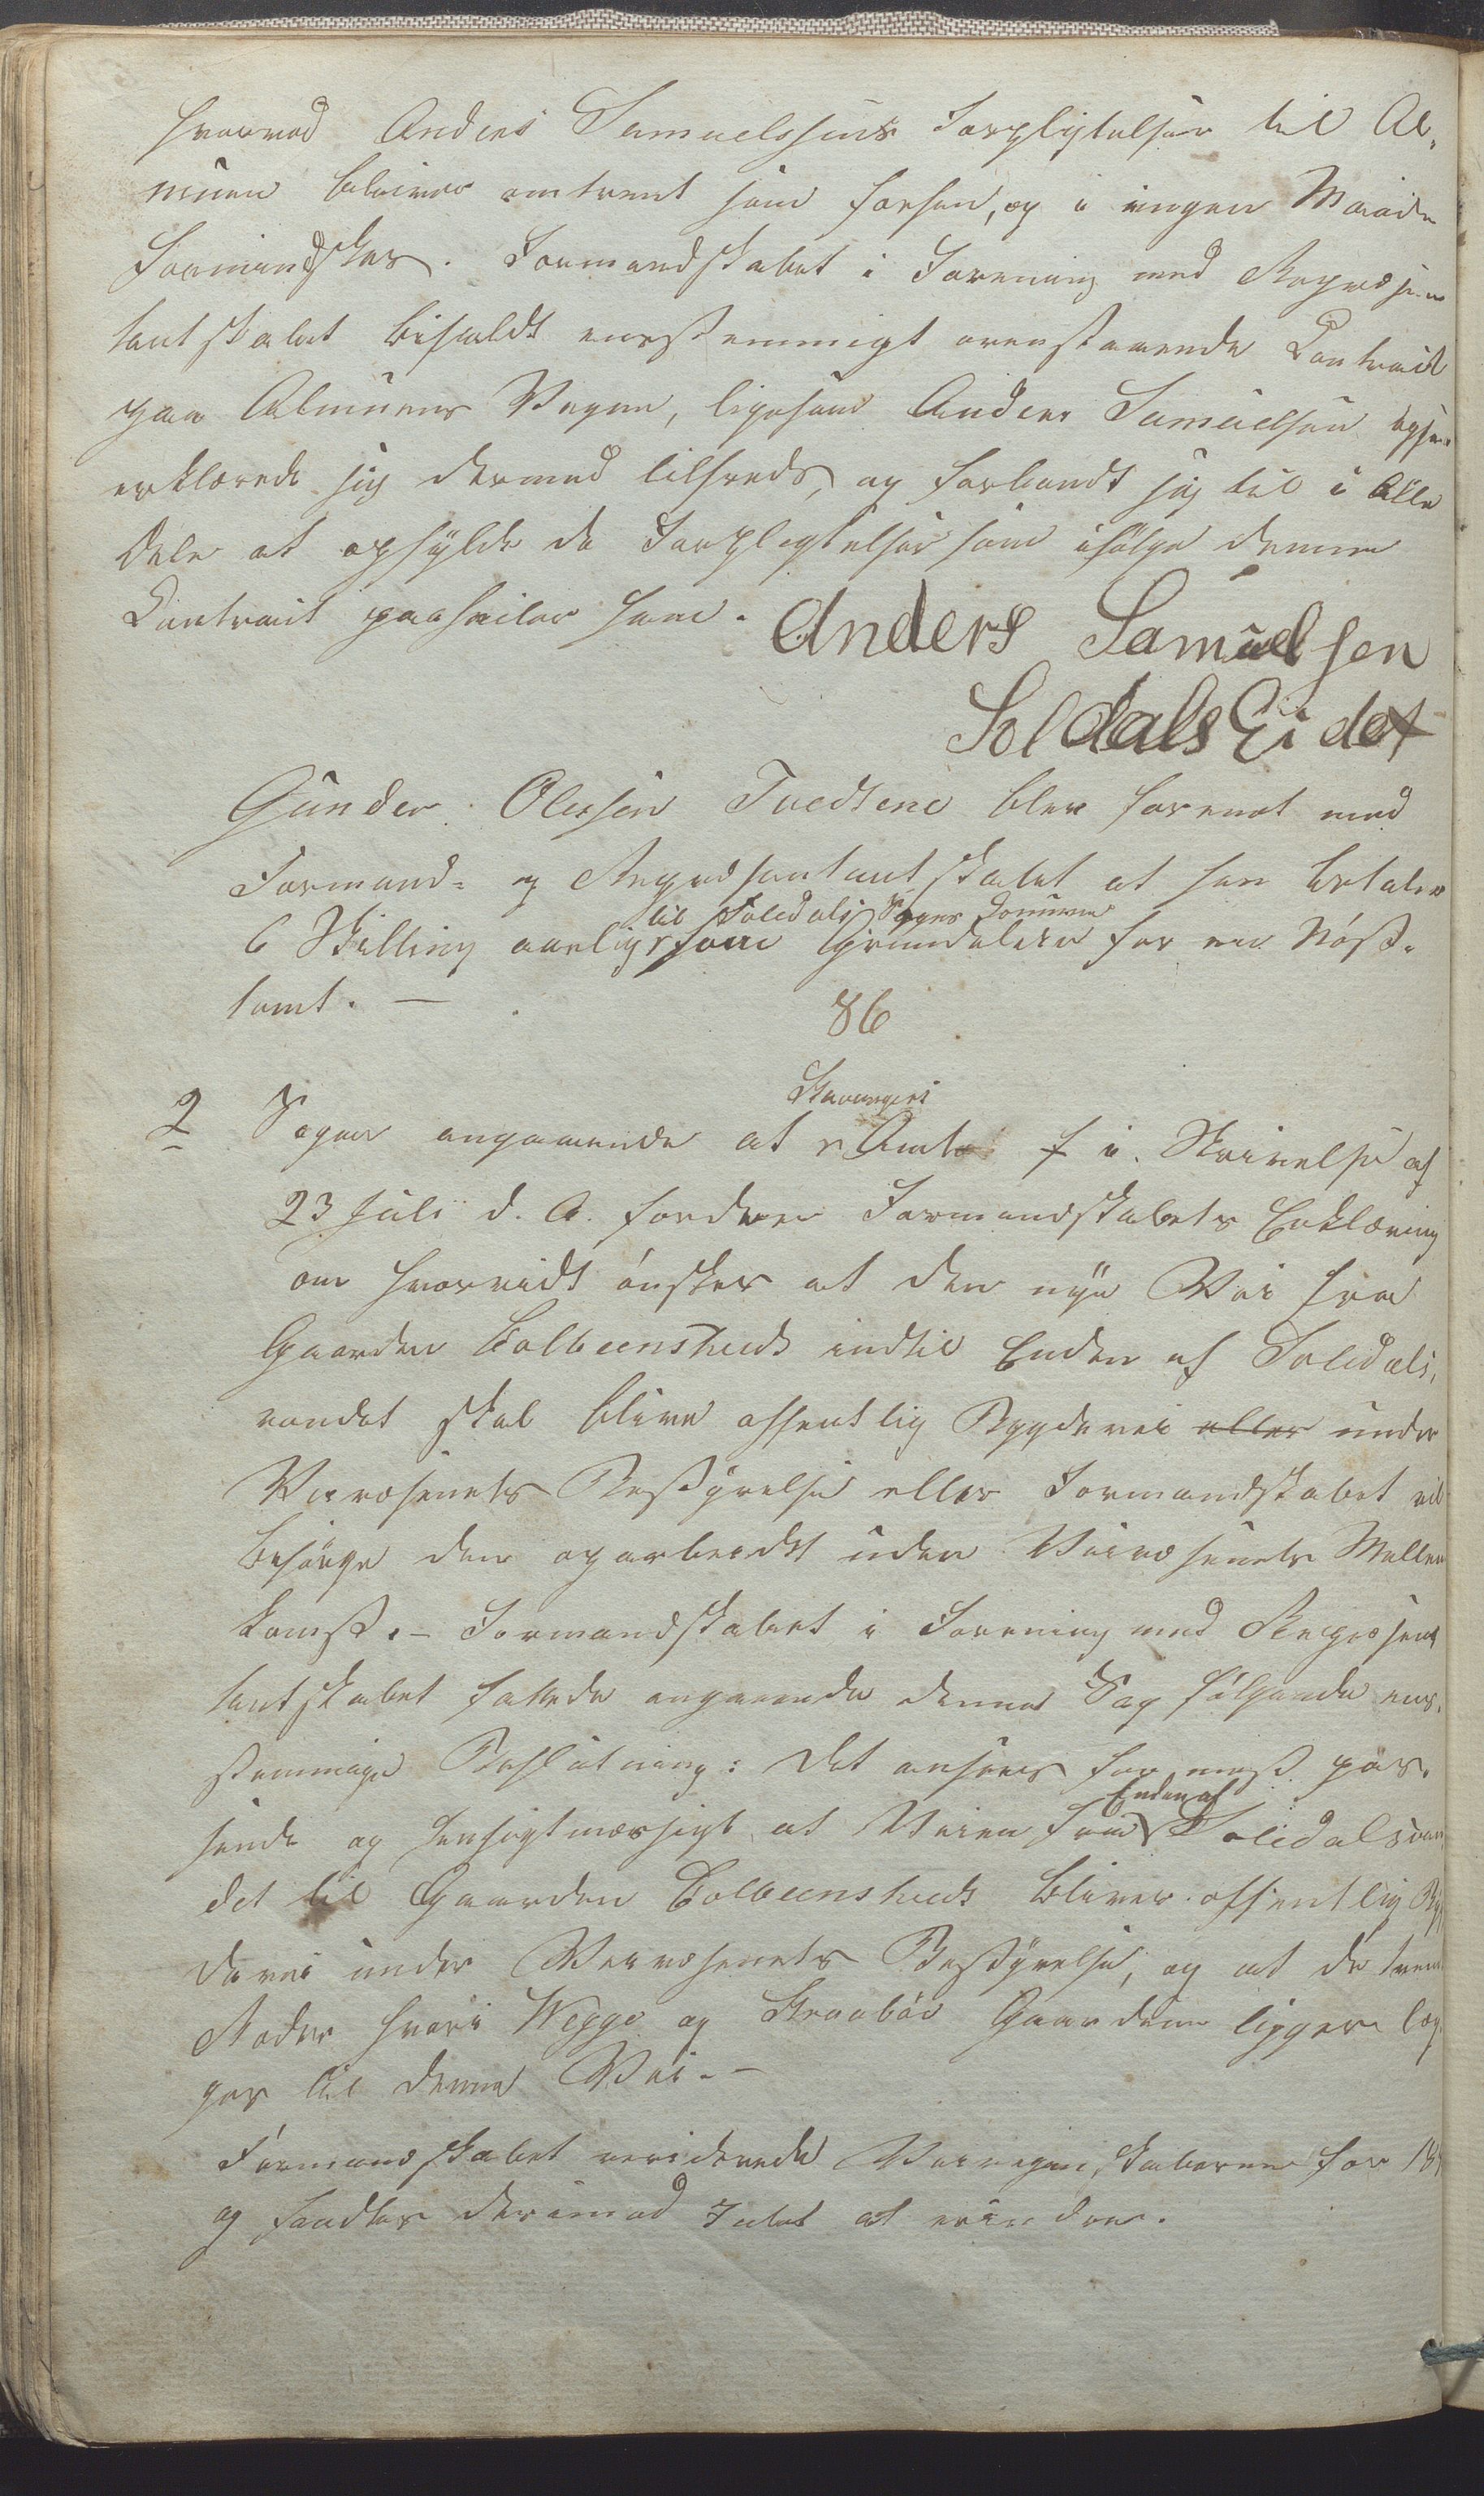 hvorved Anders Samuelsens Forpligtelser til Al-
muen bliver omtrent som forhen, og i ingen Maade
formindsket. Formandskabet i Forening med Repræsen
tantskabet bifaldt eenstemmigt ovenstaaende Contract
paa Almuens Vegne, ligesom Anders Samuelsen ogsaa
erklærede sig dermed tilfreds, og forbandt sig til i alle
Dele at opfylde de Forpligtelser som ifølge denne
Contract paahviler ham.
Anders Samuelsen
SoldalsEidet
Gunder Olessen Tvedtene blev forenet med
Formand- og Repræsentantskabet at han betaler
til Soledals Sognes Commune
6 Skilling aarlig som Grundleie for en Nøst-
tomt. —
86
Stavangers
2 Sagen angaaende at Amt i Skrivelse af
23 Juli d. A. fordrer Formandskabets Erklæring
om hvorvidt ønskes at den nye Vei fra
Gaarden Colbeenstvedt indtil Enden af Soledals-
vandet skal blive offentlig Bygdevei eller under
Veivæsenets Bestyrelse eller Formandskabet vil
besørge den oparbeidet uden Veivæsenets Mellem
komst. – Formandskabet i Forening med Repræsen
tantskabet fattede angaaende denne Sag følgende een-
stemmige Beslutning: Det ansees for mest pas-
Enden af
sende og hensigtmæssigt at Veien fra Soledalsvan
det til Gaarden Colbeenstvedt bliver offentlig Byg
devei under Veivæsenets Bestyrelse, og at de tvende
Roder hvori Wegge og Straabøe Gaardene ligger læg-
ges til denne Vei. –
Formandskabet reviderede Veiregnskaberne for 18
og fandtes derimod Intet at erindre.